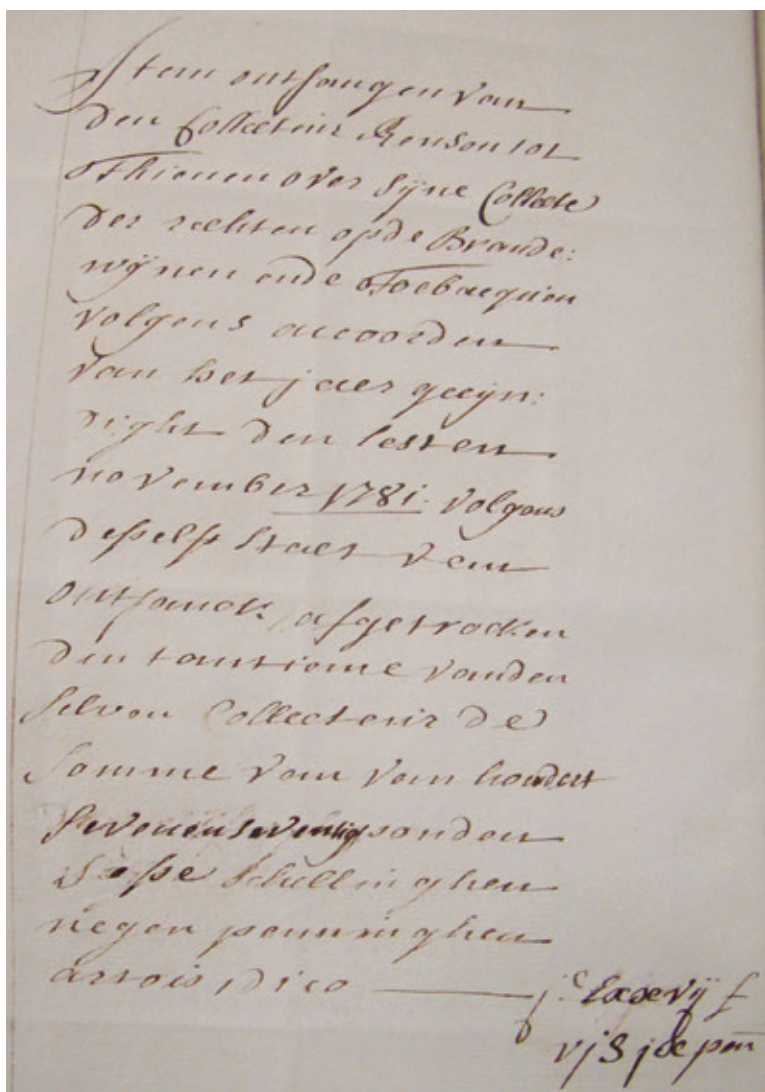 Item ontfangen van
den Collecteur Renson tot
Thienen over syne Collecte
der rechten op de Brande:
wijnen ende Toebacquen
volgens accoorden
van het jaer geeyn:
dight den lesten
november 1781. volgens
desselfs staet van
ontfanck, afgetrocken
den tantieme vanden
selven Collecteur de
somme van van hondert
sevenenseventig ponden
sesse schellinghen
negen penninghen
artois, dico — jc lxxvij £
vj s ix pen